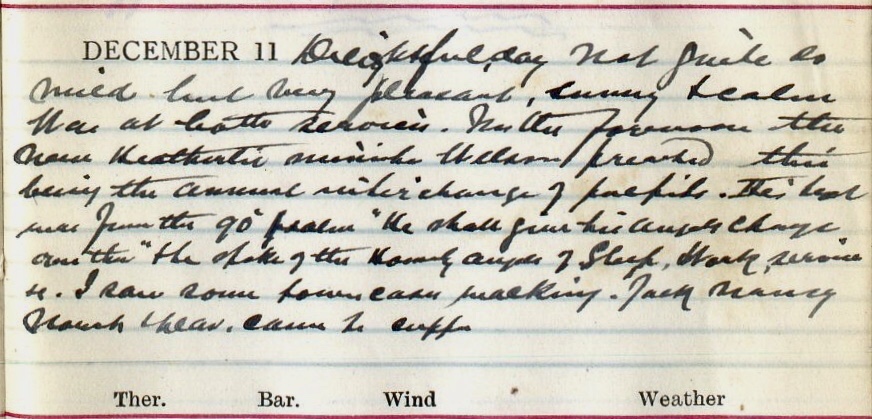 DECEMBER 11 Delightful day not quite so
mild but very pleasant, sunny & calm
Was at both services. In the forenoon the
new Methodist minister Wilson preached this
being the annual interchange of pulpits. His text
was from the 90 psalm "He shall give his angels charge
over thee" He spoke of the Homely angels of Sleep, Work, service
I saw some walking. Jack Nancy
came to supper
Ther. Bar. Wind Weather